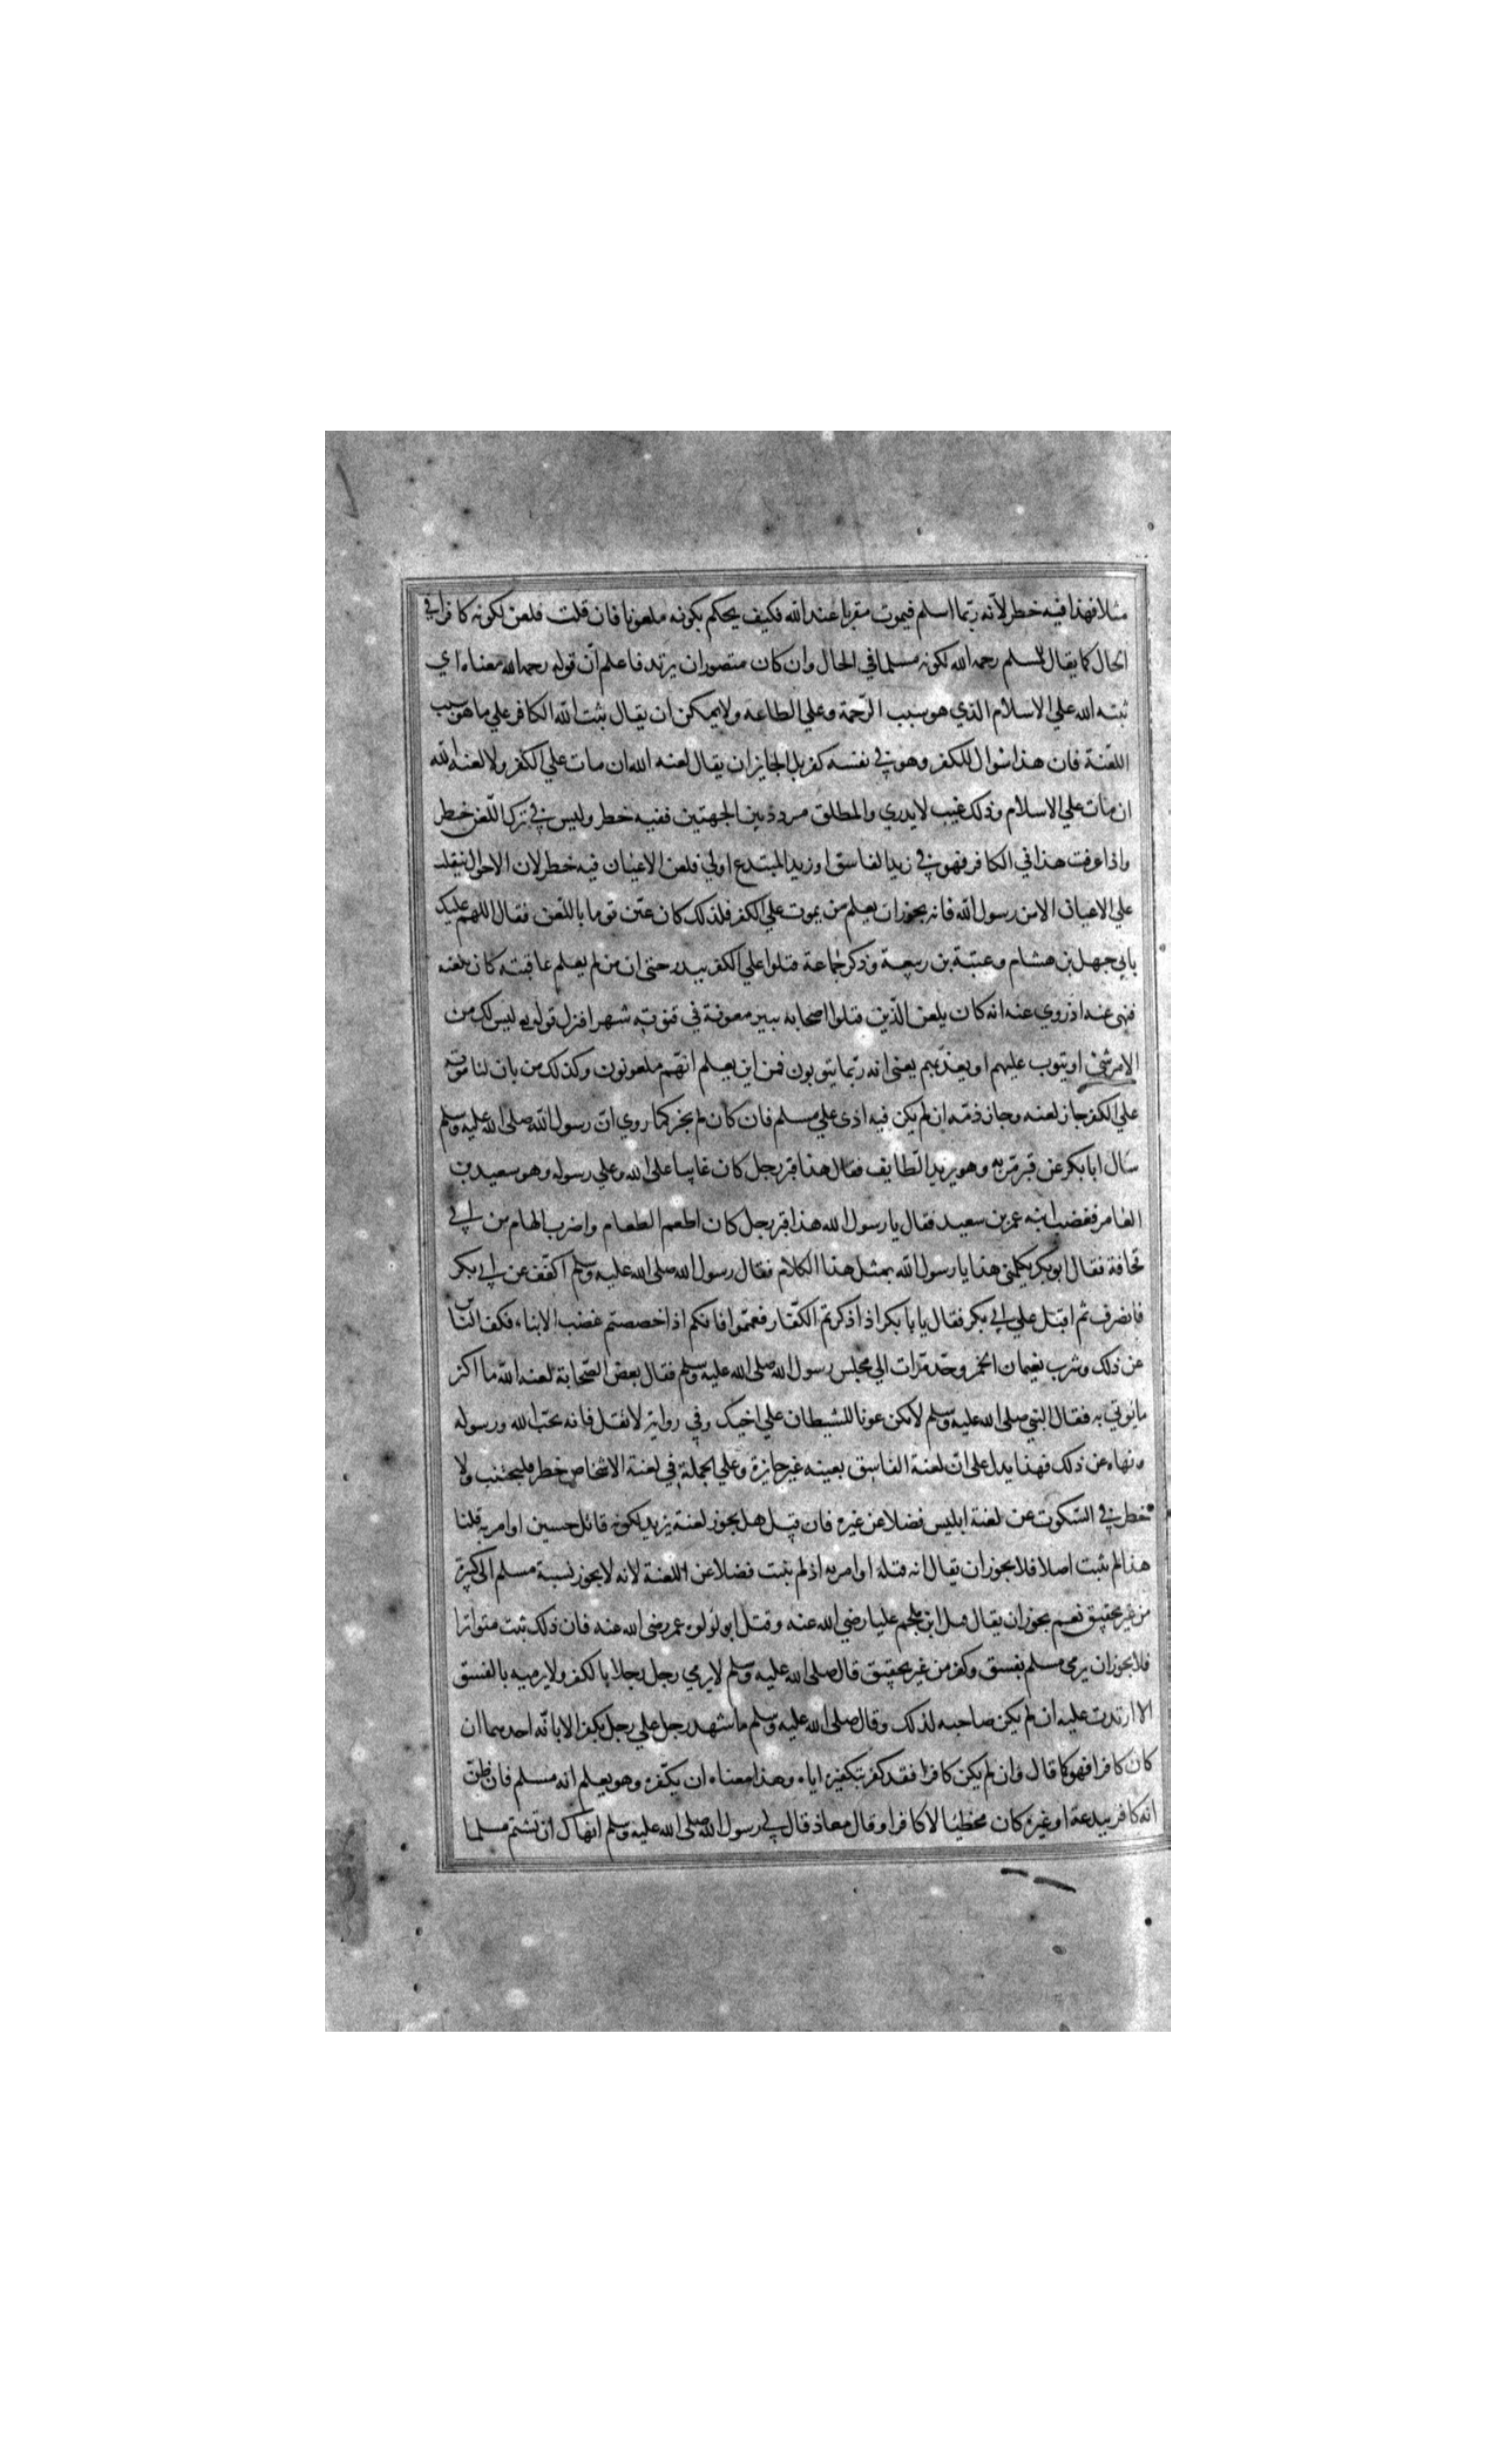 مثلا فهذا فيه خطر لانّه ربّما اسلم فيموت مقربا عند الله فكيف يحكم بكونه ملعونا فان قلت فلعن لكونه كافرا في
الحال كما يقال لمسلم رحمه الله لكونه مسلما في الحال وان كان متصور ان يرتد فاعلم انّ قوله رحمه الله معناه اي
ثبته الله علي الاسلام الذي هو سبب الرّحمة وعلي الطاعة ولا يمكن ان يقال ثبت الله الكافر علي ما هو سبب
اللعنة فان هذا سوال للكفر وهو في نفسه كفر بل الجايز ان يقال لعنه الله ان مات علي الكفر ولا لعنه الله
ان مات علي الاسلام وذلك غيب لا يدري والمطلق مردد بين الجهتين ففيه خطر وليس في ترك اللعن خطر
واذا عرفت هذا في الكافر فهو في زيد الفاسق او زيد المبتدع اولي فلعن الاعيان فيه خطر لان الاحوال تنقلب
علي الاعيان الا من رسول الله فانه يجوز ان يعلم من يموت علي الكفر فلذلك كان عيّن قوما باللعن فقال اللهم عليك
بابي جهل بن هشام وعتبة بن ربيعة وذكر جماعة قتلوا علي الكفر ببدر حتى ان من لم يعلم عاقبته كان يلعنه
فنهى عنه اذ روي عنه انه كان يلعن الذين قتلوا اصحابه ببير معونة في قنوته شهرا فنزل قوله ليس لك من
الامر شئ او يتوب عليهم او يعذبهم يعنى انه ربّما يتوبون فمن اين يعلم انهّم ملعونون وكذلك من بان لنا موته
علي الكفر جاز لعنه وجاز ذمّه ان لم يكن فيه اذى علي مسلم فان كان لم يجز كما روي انّ رسول الله صلى الله عليه وسلم
سال ابا بكر عن قبر مرّ به وهو يريد الطايف فقال هذا قبر رجل كان عاتيا على الله وعلي رسوله وهو سعيد بن
العامر فغضب ابنه عمر بن سعيد فقال يا رسول الله هذا قبر رجل كان اطعم الطعام واضرب الهام من ابي
قحافة فقال ابو بكر يكلمني هذا يا رسول الله بمثل هذا الكلام فقال رسول الله صلى الله عليه وسلم اكفف عن ابي بكر
فانصرف ثم اقبل علي ابي بكر فقال يا با بكر اذا ذكرتم الكفّار فعمموا فانكم اذا خصصتم غضب الابناء فكف النّاس
عن ذلك وشرب نعيمان الخمر وحدّ مرّات الي مجلس رسول الله صلى الله عليه وسلم فقال بعض الصّحابة لعنه الله ما اكثر
ما يوتي به فقال النبي صلى الله عليه وسلم لا تكن عونا للشيطان علي اخيك وفي رواية لا تقل فانه يحبّ الله ورسوله
ونهاه عن ذلك فهذا يدل على انّ لعنة الفاسق بعينه غير جايزة وعلي الجملة في لعنة الاشخاص خطر فليجتنب ولا
خطر في السّكوت عن لعنة ابليس فضلا عن غيره فان قيل هل يجوز لعنة يزيد لكونه قاتل حسين او امر به قلنا
هذا لم يثبت اصلا فلا يجوز ان يقال انه قتله او امر به اذ لم يثبت فضلا عن اللعنة لانه لا يجوز نسبة مسلم الى كبيرة
من غير تحقيق نعم يجوز ان يقال قتل ابن ملجم عليا رضي الله عنه وقتل ابو لولوه عمر رضي الله عنه فان ذلك ثبت متواترا
فلا يجوز ان يرمى مسلم بفسق وكفر من غير تحقيق قال صلى الله عليه وسلم لا يرمي رجل رجلا بالكفر ولا يرميه بالفسق
الا ارتدت عليه ان لم يكن صاحبه لذلك وقال صلى الله عليه وسلم ما شهد رجل علي رجل بكفر الا با به احدهما ان
كان كافرا فهو كما قال وان لم يكن كافرا فقد كفر بتكفيره اياه وهذا معناه ان يكفّره وهو يعلم انه مسلم فان ظنّ
انه كافر ببدعة او غيره كان مخطيئا لا كافرا وقال معاذ قال لي رسول الله صلى الله عليه وسلم انهاك ان تشتم مسلما